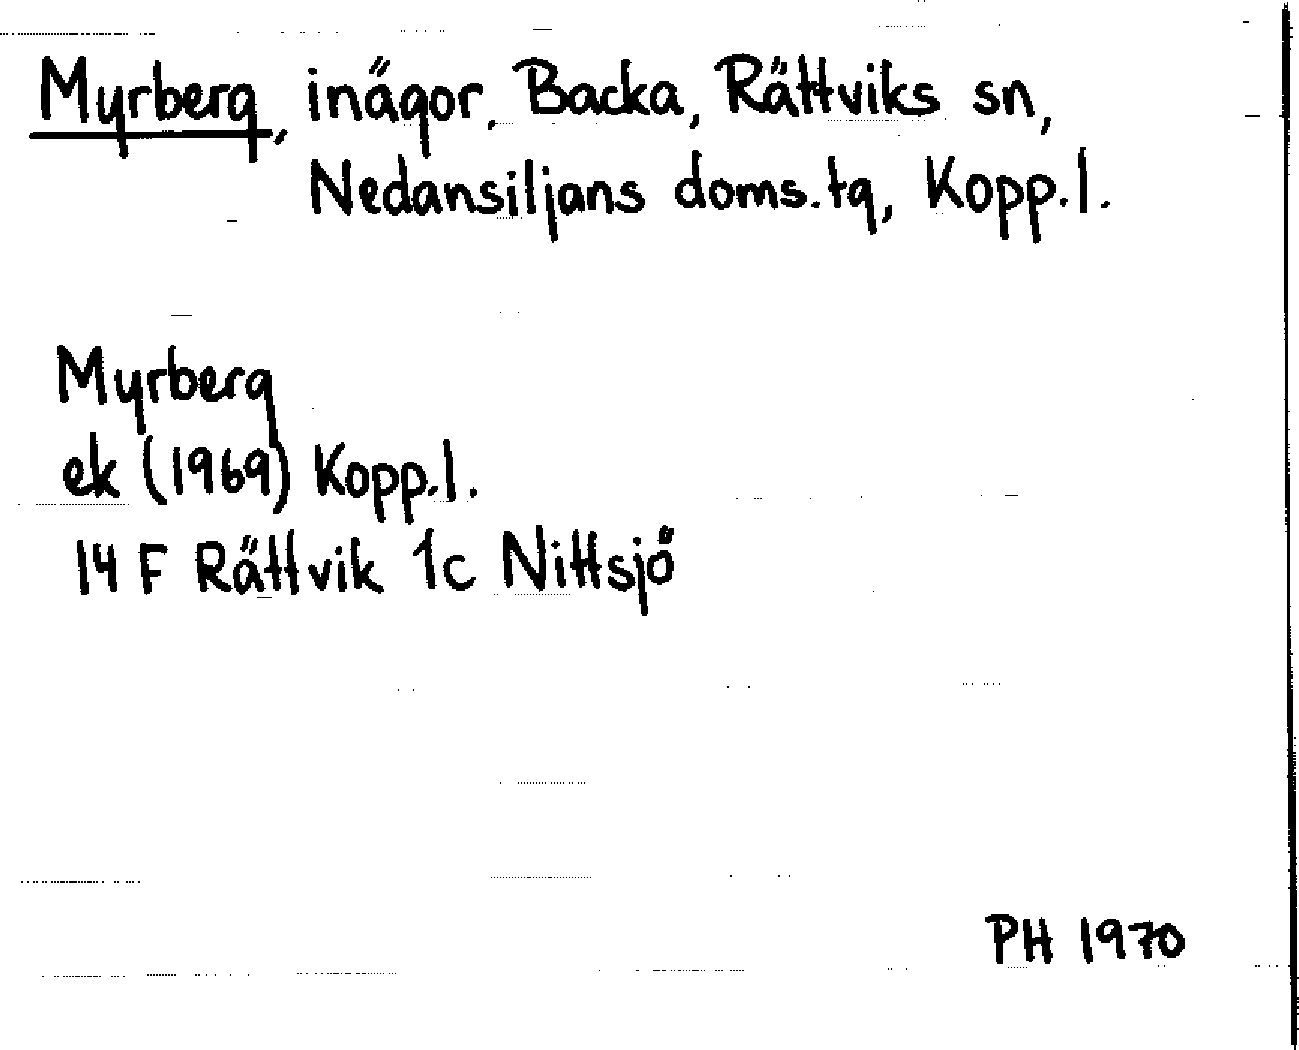 Myrberg, inägor, Backa, Rättviks sn,
Nedansiljans doms.tg, Kopp.l.
Myrberg
ek (1969) Kopp.l.
14 F Rättvik 1c Nittsjö
PH 1970